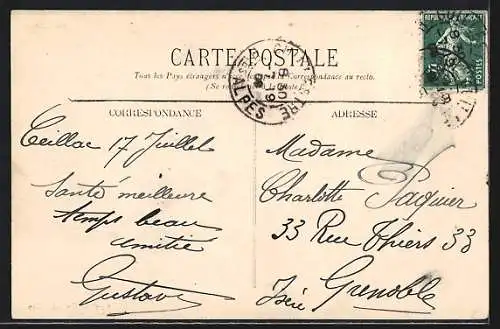 CARTE POSTALE
Tous les Pays étrangers n'acceptent pas la correspondance au recto.
(Se
CORRESPONDANCE
ADRESSE
RÉPUBLIQUE FRANÇAISE
POSTES
ALPES
Ceillac 17 Juillet
Santé meilleure
temps beau
amitié
Gustave
Madame
Charlotte Paquier
33 Rue Thiers 33
Grenoble
Isère